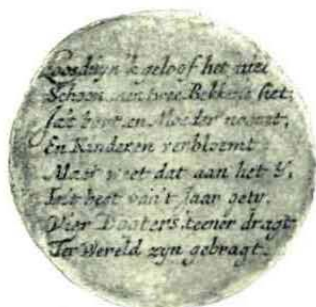 Loosduyn ik geloof het niet
Schoon men twee Bekkens siet,
en Moeder noemt,
En Kinderen verbloemt
Maer weet dat aan het Y,
In't van't Jaar
Vier Dogters teener dragt
Ter Wereld zyn gebragt.